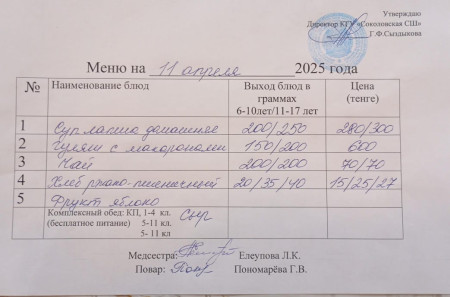 Утверждаю
Директор КГУ «Соколовская СШ»
Г.Ф.Сыздыкова
Меню на 11 апреля 2025 года
№ Наименование блюд Выход блюд в граммах 6-10лет/11-17 лет Цена (тенге)
1 Суп лапша домашнее 200/250 280/300
2 Гуляш с макаронами 150/200 600
3 Чай 200/200 70/70
4 Хлеб ржано-пшеничный 20/35/40 15/25/27
5 Фрукт яблоко
Комплексный обед: КП, 1-4 кл. Сыр
(бесплатное питание) 5-11 кл.
5- 11 кл
Медсестра: Елеупова Л.К.
Повар: Пономарёва Г.В.